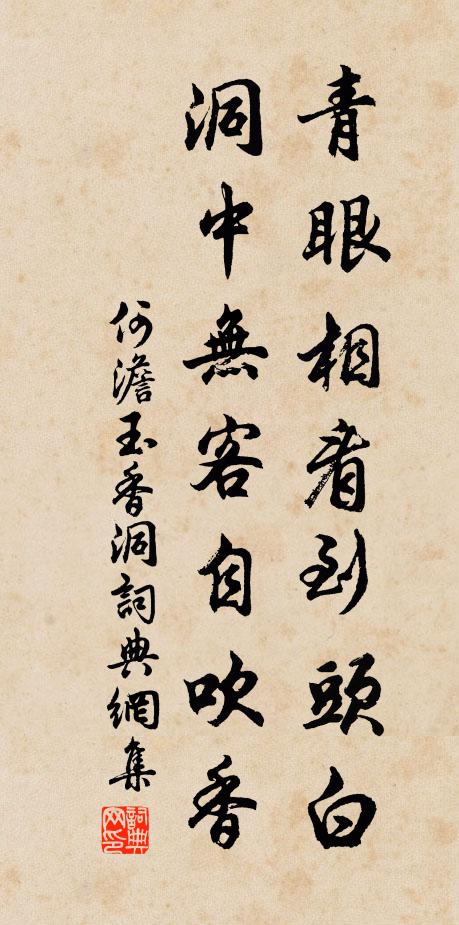 青眼相看到頭白
洞中無客自吹香
何澹玉香洞詞典網集
詞典網印